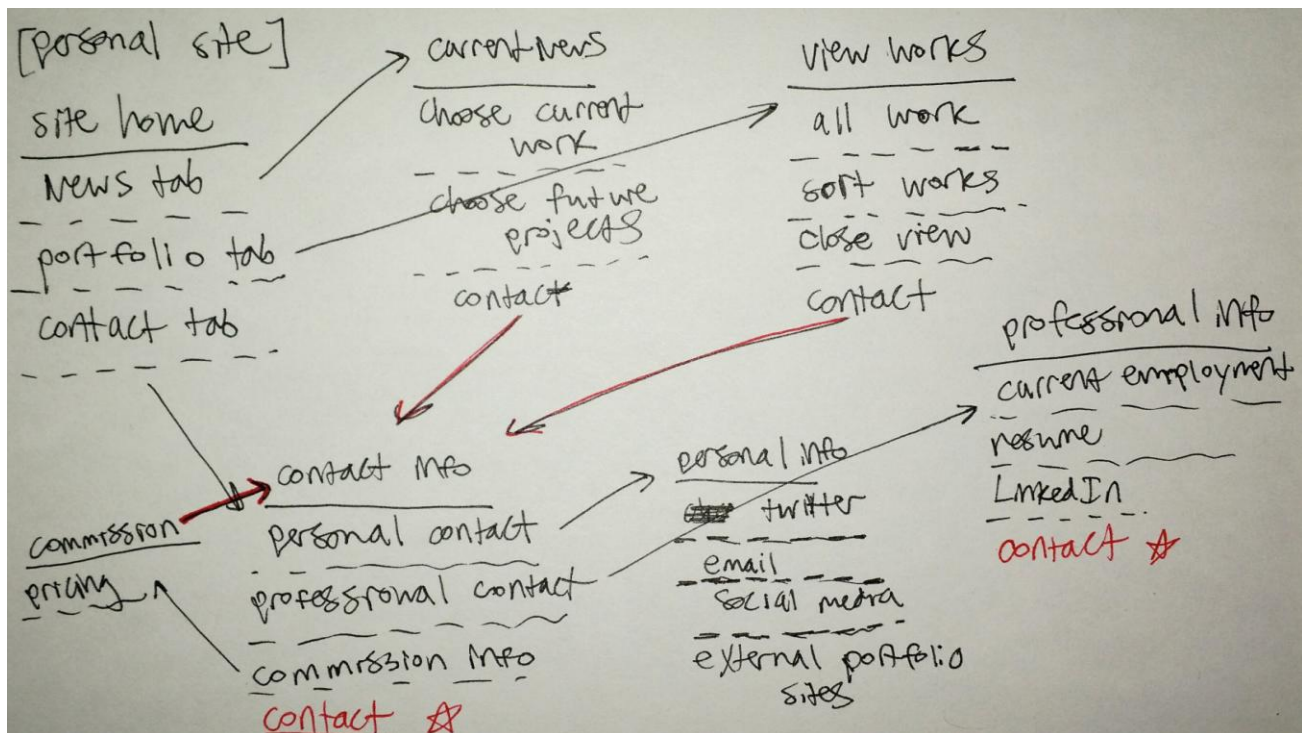 [personal site]
site home
News tab
portfolio tab
contact tab
current News
choose current
work
choose future
projects
contact
view works
all work
sort works
close view
contact
professional info
current employment
resume
LinkedIn
contact
commission
pricing
contact info
personal contact
professional contact
commission info
contact
personal info
twitter
email
social media
external portfolio
sites